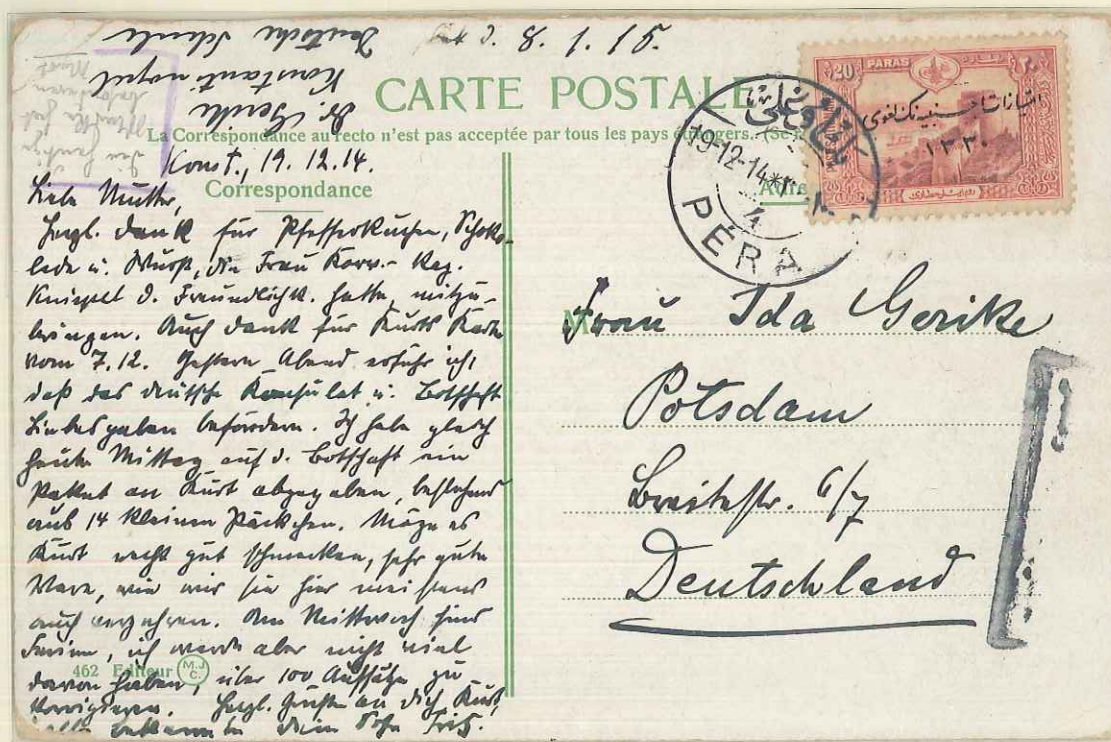 8. 1. 15.
Deutsche Schule
Konstantinopel
Dr. Gerike
CARTE POSTALE
La Correspondance au recto n'est pas acceptée par tous les pays étrangers.
Const., 19. 12. 14.
Correspondance
Liebe Mutter,
Herzl. Dank für Pfefferkuchen, Schoko-
lade u. Wurst, die Frau Korv.-Kap.
d. Freundlichk. hatte, mitzu-
bringen. Auch Dank für Kurts Karte
vom 7.12. Gestern Abend erfuhr ich,
daß das deutsche Konsulat u. Botschaft
Liebesgaben befördern. Ich habe gleich
heute Mittag auf d. Botschaft ein
Paket an Kurt abgegeben, bestehend
aus 14 kleinen Päckchen. Möge es
Kurt recht gut schmecken, sehr gute
Ware, wie wir sie hier meistens
auch verzehren. Am Mittwoch sind
Ferien, ich werde aber nicht viel
davon haben, über 100 Aufsätze zu
korrigieren. Herzl. Grüße an Dich, Kurt,
alle Bekannte Dein Sohn Fritz.
462 Editeur M.J.C.
20 PARAS
١٣٣٠
19-12-14
4
PÉRA
Frau Ida Gerike
Potsdam
Breitestr. 6/7
Deutschland